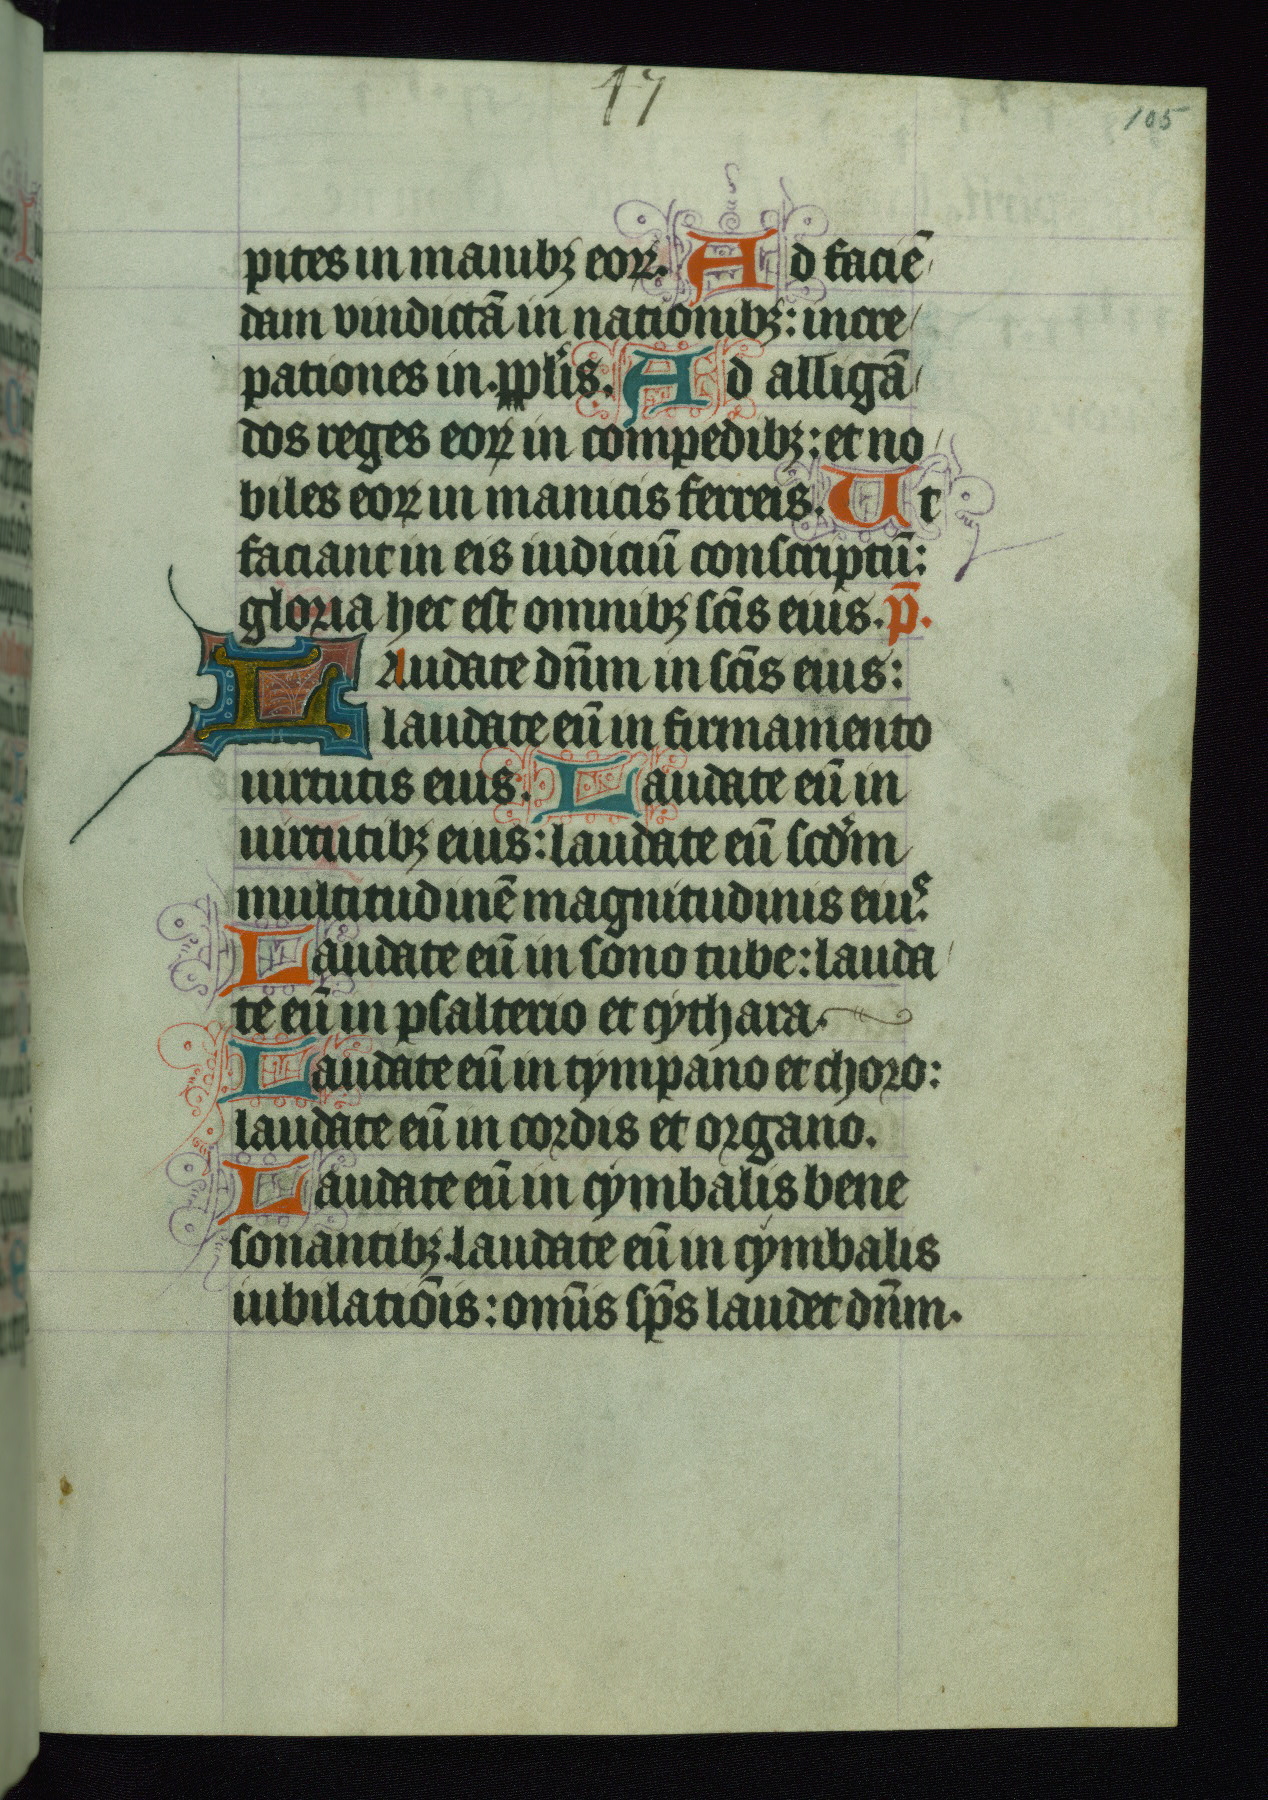 17
105
pites in manibꝫ eoꝝ. Ad faciē
dam vindictā in nationibꝫ: incre
pationes in pplis. Ad alligā
dos reges eoꝝ in compedibꝫ: et no
biles eoꝝ in manicis ferreis. Ut
faciant in eis iudiciū conscriptū:
gloria hec est omnibꝫ scīs eius. p̄.
Laudate dn̄m in scīs eius:
laudate eū in firmamento
uirtutis eius. Laudate eū in
uirtutibꝫ eius: laudate eū scd̄m
multitudinē magnitudinis eius.
Laudate eū in sono tube: lauda
te eū in psalterio et cythara.
Laudate eū in tympano et choro:
laudate eū in cordis et organo.
Laudate eū in cymbalis bene
sonantibꝫ. laudate eū in cymbalis
iubilatiōis: omīs sp̄s laudet dn̄m.